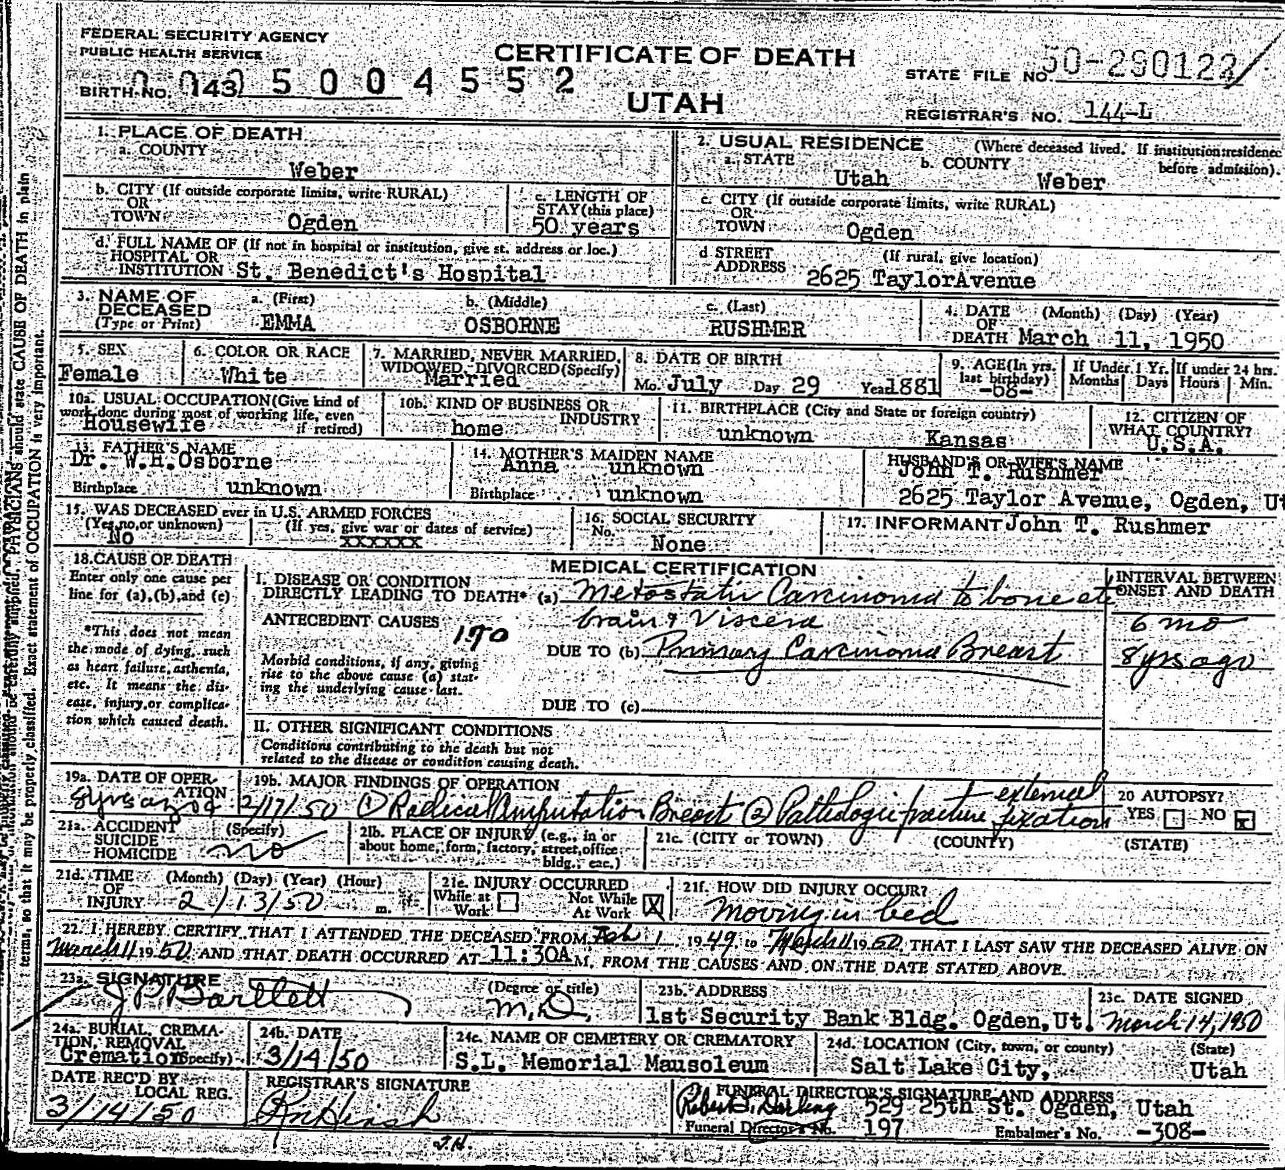 FEDERAL SECURITY AGENCY
PUBLIC HEALTH SERVICE
CERTIFICATE OF DEATH
UTAH
BIRTH NO. (143) 5004552
STATE FILE NO. 50-290122
REGISTRAR'S NO. 144-L
1. PLACE OF DEATH
a. COUNTY
Weber
2. USUAL RESIDENCE (Where deceased lived. If institution: residence before admission).
a. STATE Utah b. COUNTY Weber
b. CITY (If outside corporate limits, write RURAL)
OR
TOWN Ogden
c. LENGTH OF
STAY (this place)
50 years
c. CITY (If outside corporate limits, write RURAL)
OR
TOWN Ogden
d. FULL NAME OF (If not in hospital or institution, give st. address or loc.)
HOSPITAL OR
INSTITUTION St. Benedict's Hospital
d STREET (If rural, give location)
ADDRESS 2625 TaylorAvenue
3. NAME OF
DECEASED
(Type or Print)
a. (First) b. (Middle) c. (Last)
EMMA OSBORNE RUSHMER
4. DATE (Month) (Day) (Year)
OF
DEATH March 11, 1950
5. SEX
Female
6. COLOR OR RACE
White
7. MARRIED, NEVER MARRIED,
WIDOWED, DIVORCED (Specify)
Married
8. DATE OF BIRTH
Mo. July Day 29 Year 1881
9. AGE (In yrs.
last birthday)
-68-
If Under 1 Yr.
Months Days
If under 24 hrs.
Hours Min.
10a. USUAL OCCUPATION (Give kind of
work done during most of working life, even
if retired)
Housewife
10b. KIND OF BUSINESS OR
INDUSTRY
home
11. BIRTHPLACE (City and State or foreign country)
unknown Kansas
12. CITIZEN OF
WHAT COUNTRY?
U.S.A.
13. FATHER'S NAME
Dr. W.H.Osborne
Birthplace unknown
14. MOTHER'S MAIDEN NAME
Anna unknown
Birthplace unknown
HUSBAND'S OR WIFE'S NAME
John T. Rushmer
2625 Taylor Avenue, Ogden, Ut
15. WAS DECEASED ever in U.S. ARMED FORCES
(Yes, no, or unknown) (If yes, give war or dates of service)
No XXXXXX
16. SOCIAL SECURITY
No.
None
17. INFORMANT John T. Rushmer
18. CAUSE OF DEATH
Enter only one cause per
line for (a), (b), and (c)
*This does not mean
the mode of dying, such
as heart failure, asthenia,
etc. It means the dis-
ease, injury, or complica-
tion which caused death.
MEDICAL CERTIFICATION
I. DISEASE OR CONDITION
DIRECTLY LEADING TO DEATH* (a) Metastatic Carcinoma to bone et
brain & Viscera
INTERVAL BETWEEN
ONSET AND DEATH
6 mo
ANTECEDENT CAUSES
170
Morbid conditions, if any, giving
rise to the above cause (a) stat-
ing the underlying cause last.
DUE TO (b) Primary Carcinoma Breast
8 yrs ago
DUE TO (c)
II. OTHER SIGNIFICANT CONDITIONS
Conditions contributing to the death but not
related to the disease or condition causing death.
19a. DATE OF OPER-
ATION
8 yrs ago
19b. MAJOR FINDINGS OF OPERATION
2/17/50 (1) Radical Amputation Breast (2) Pathologic fracture external
fixation
20 AUTOPSY?
YES NO x
21a. ACCIDENT (Specify)
SUICIDE
HOMICIDE no
21b. PLACE OF INJURY (e.g., in or
about home, form, factory, street, office
bldg., etc.)
21c. (CITY or TOWN) (COUNTY) (STATE)
21d. TIME (Month) (Day) (Year) (Hour)
OF
INJURY 2/13/50 m.
21e. INJURY OCCURRED
While at Work Not While At Work X
21f. HOW DID INJURY OCCUR?
Moving in bed
22. I HEREBY CERTIFY THAT I ATTENDED THE DECEASED FROM Feb 1, 1949, to March 11 1950, THAT I LAST SAW THE DECEASED ALIVE ON
March 11 1950, AND THAT DEATH OCCURRED AT 11:30A M., FROM THE CAUSES AND ON THE DATE STATED ABOVE.
23a. SIGNATURE (Degree or title)
J P Bartlett M.D.
23b. ADDRESS
1st Security Bank Bldg. Ogden, Ut.
23c. DATE SIGNED
March 14, 1950
24a. BURIAL, CREMA-
TION, REMOVAL
(Specify)
Cremation
24b. DATE
3/14/50
24c. NAME OF CEMETERY OR CREMATORY
S.L. Memorial Mausoleum
24d. LOCATION (City, town, or county) (State)
Salt Lake City, Utah
DATE REC'D BY
LOCAL REG.
3/14/50
REGISTRAR'S SIGNATURE
FUNERAL DIRECTOR'S SIGNATURE AND ADDRESS
529 25th St. Ogden, Utah
Funeral Director's No. 197 Embalmer's No. -308-
PHYSICIANS should state CAUSE OF DEATH in plain
terms, so that it may be properly classified. Exact statement of OCCUPATION is very important.